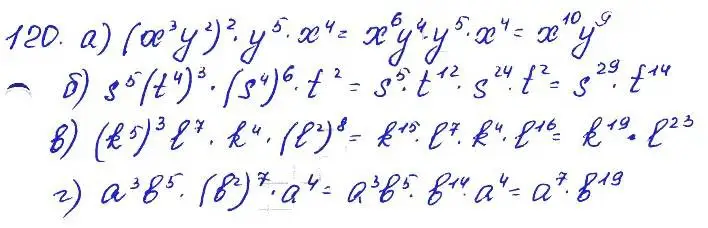 120. а) (x³y²)²·y⁵·x⁴ = x⁶y⁴·y⁵·x⁴ = x¹⁰y⁹
б) s⁵(t⁴)³·(s⁴)⁶·t² = s⁵·t¹²·s²⁴·t² = s²⁹·t¹⁴
в) (k⁵)³l⁷·k⁴·(l²)⁸ = k¹⁵·l⁷·k⁴·l¹⁶ = k¹⁹·l²³
г) a³b⁵·(b²)⁷·a⁴ = a³b⁵·b¹⁴·a⁴ = a⁷·b¹⁹